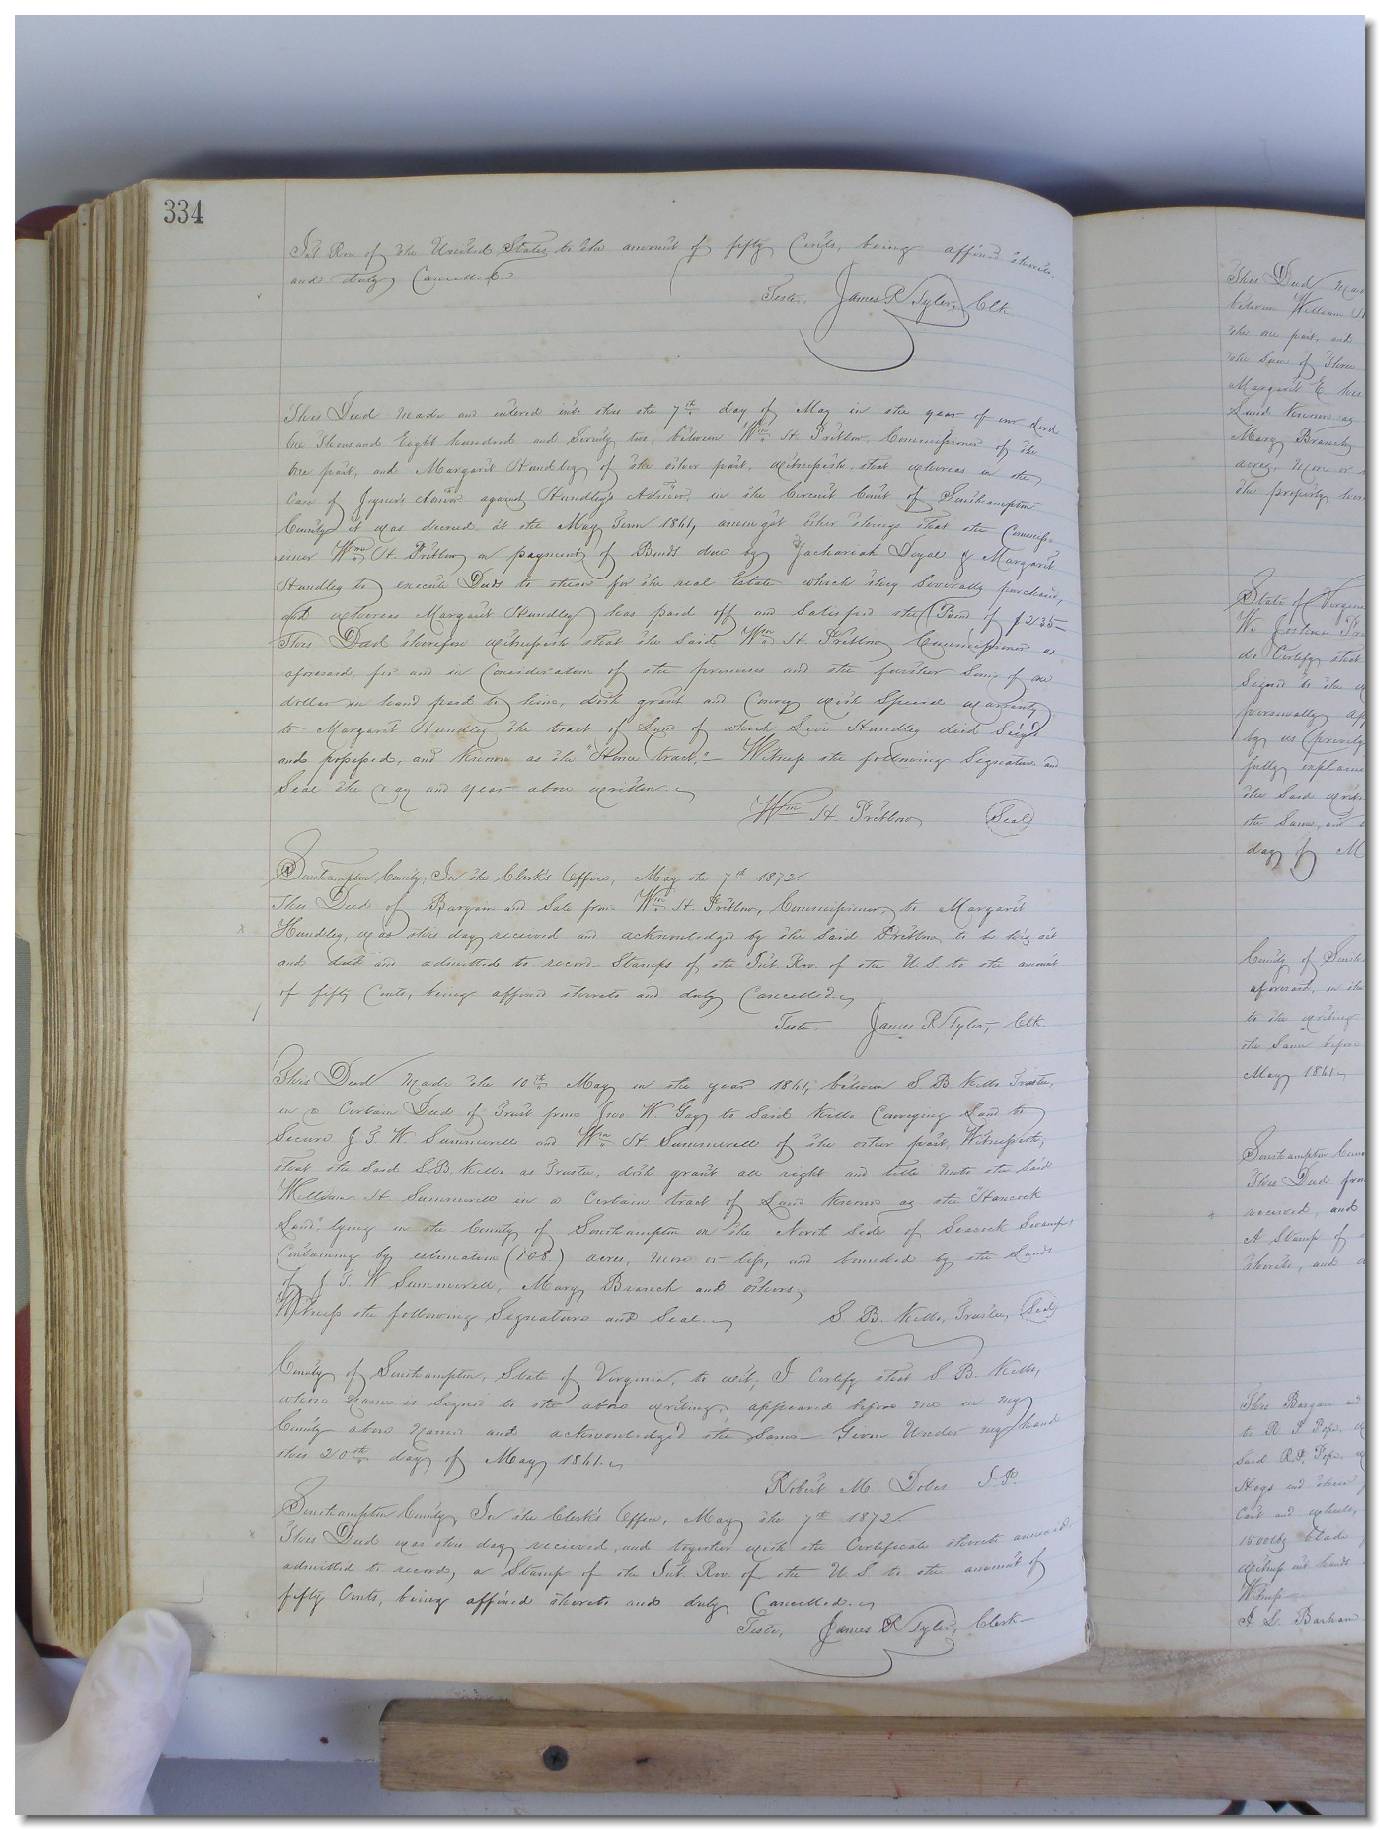 334
Int Rev of the United States to the amount of fifty Cents, being affixed thereto,
and duly Cancelled.
Teste. James R Tyler, Clk
This Deed made and entered into this the 7th day of May in the year of our Lord
One Thousand Eight hundred and Seventy two between Wm H. Pretlow Commissioner of the
One part, and Margaret Hundley of the other part, witnesseth, that whereas in the
Case of Joyner's against Hundley's Admor, in the Circuit Court of Southampton
County it was decreed at the May Term 1861, amongst other things that the Commiss-
ioner Wm H. Pretlow on payment of Bonds due by Zachariah Doyal & Margaret
Hundley to execute Deeds to them for the real Estate which they Severally purchased,
And whereas Margaret Hundley has paid off and Satisfied the Bond of $235
This Deed therefore witnesseth that the Said Wm H. Pretlow Commissioner as
aforesaid, for and in Consideration of the premises and the further Sum of one
dollar in hand paid to him, doth grant and Convey with Special warranty
to Margaret Hundley the tract of Land of which Levi Hundley died Seized
and possessed, and known as the "Home tract," Witness the following Signature and
Seal the day and year above written.
Wm H. Pretlow Seal
Southampton County, In the Clerk's Office, May the 7th 1872.
This Deed of Bargain and Sale from Wm H. Pretlow, Commissioner, to Margaret
Hundley, was this day received and acknowledged by the Said Pretlow to be his act
and deed and admitted to record Stamps of the Int. Rev. of the U.S. to the amount
of fifty Cents, being affixed thereto and duly Cancelled.
Teste. James R Tyler, Clk
This Deed made the 10th May in the year 1861, between S B Kello Trustee,
in a Certain Deed of Trust from Jno W. Gay to Said Kello Conveying Land to
Secure J. T. W Summerell and Wm H Summerell of the other part, Witnesseth,
that the Said S.B. Kello as Trustee, doth grant all right and title unto the Said
William H Summerell in a Certain tract of Land known as the "Hancock
Land," lying in the County of Southampton on the North Side of Seacock Swamp,
Containing by estimation (108) acres, more or less, and bounded by the Lands
of J T. W Summerell, Mary Branch and others,
Witness the following Signature and Seal. S B. Kello, Trustee, Seal
County of Southampton, State of Virginia, to wit; I Certify that S B. Kello,
whose name is Signed to the above writing, appeared before me in my
County above named and acknowledged the Same Given Under my hand
this 20th day of May 1861.
Robert M. Dobes J.P.
Southampton County, In the Clerk's Office, May the 7th 1872.
This Deed was this day received, and together with the Certificate thereto annexed,
admitted to record, a Stamp of the Int. Rev. of the U S to the amount of
fifty Cents, being affixed thereto and duly Cancelled.
Teste, James R Tyler, Clerk
This Deed
between William
the one part, and
the Sum of Three
Margaret E his
Land known as
Mary Branch
acres, more or
the property
State of Virginia
W.
do Certify that
Signed to the
personally
by us privily
fully
the Said
the Same, and
day of M
County of South
aforesaid, in the
to the writing
the Same before
May 1861
Southampton
This Deed from
received, and
A Stamp of
thereto, and
This Bargain and
to R P Pope,
Said R.P. Pope,
Hogs and
Cart and wheels,
1500 lbs blade
Witness our hands
Witness
J L. Barham